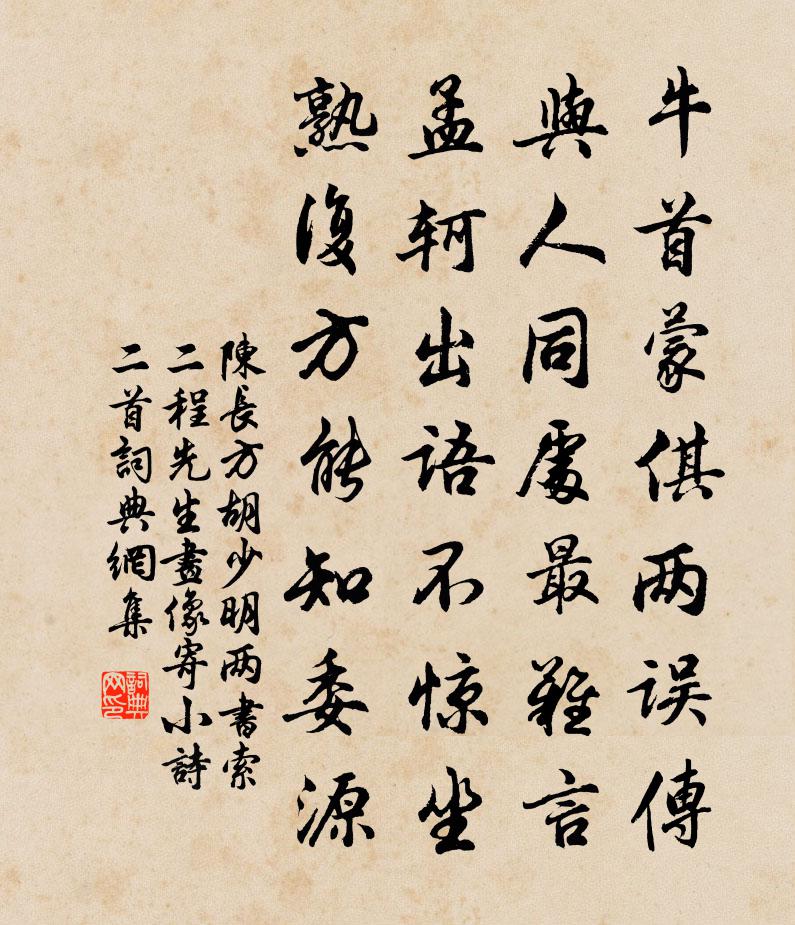 牛首蒙倛两误傳
與人同處最難言
孟轲出语不惊坐
熟復方能知委源
陳長方胡少明两書索
二程先生畫像寄小詩
二首詞典網集
詞典
网印